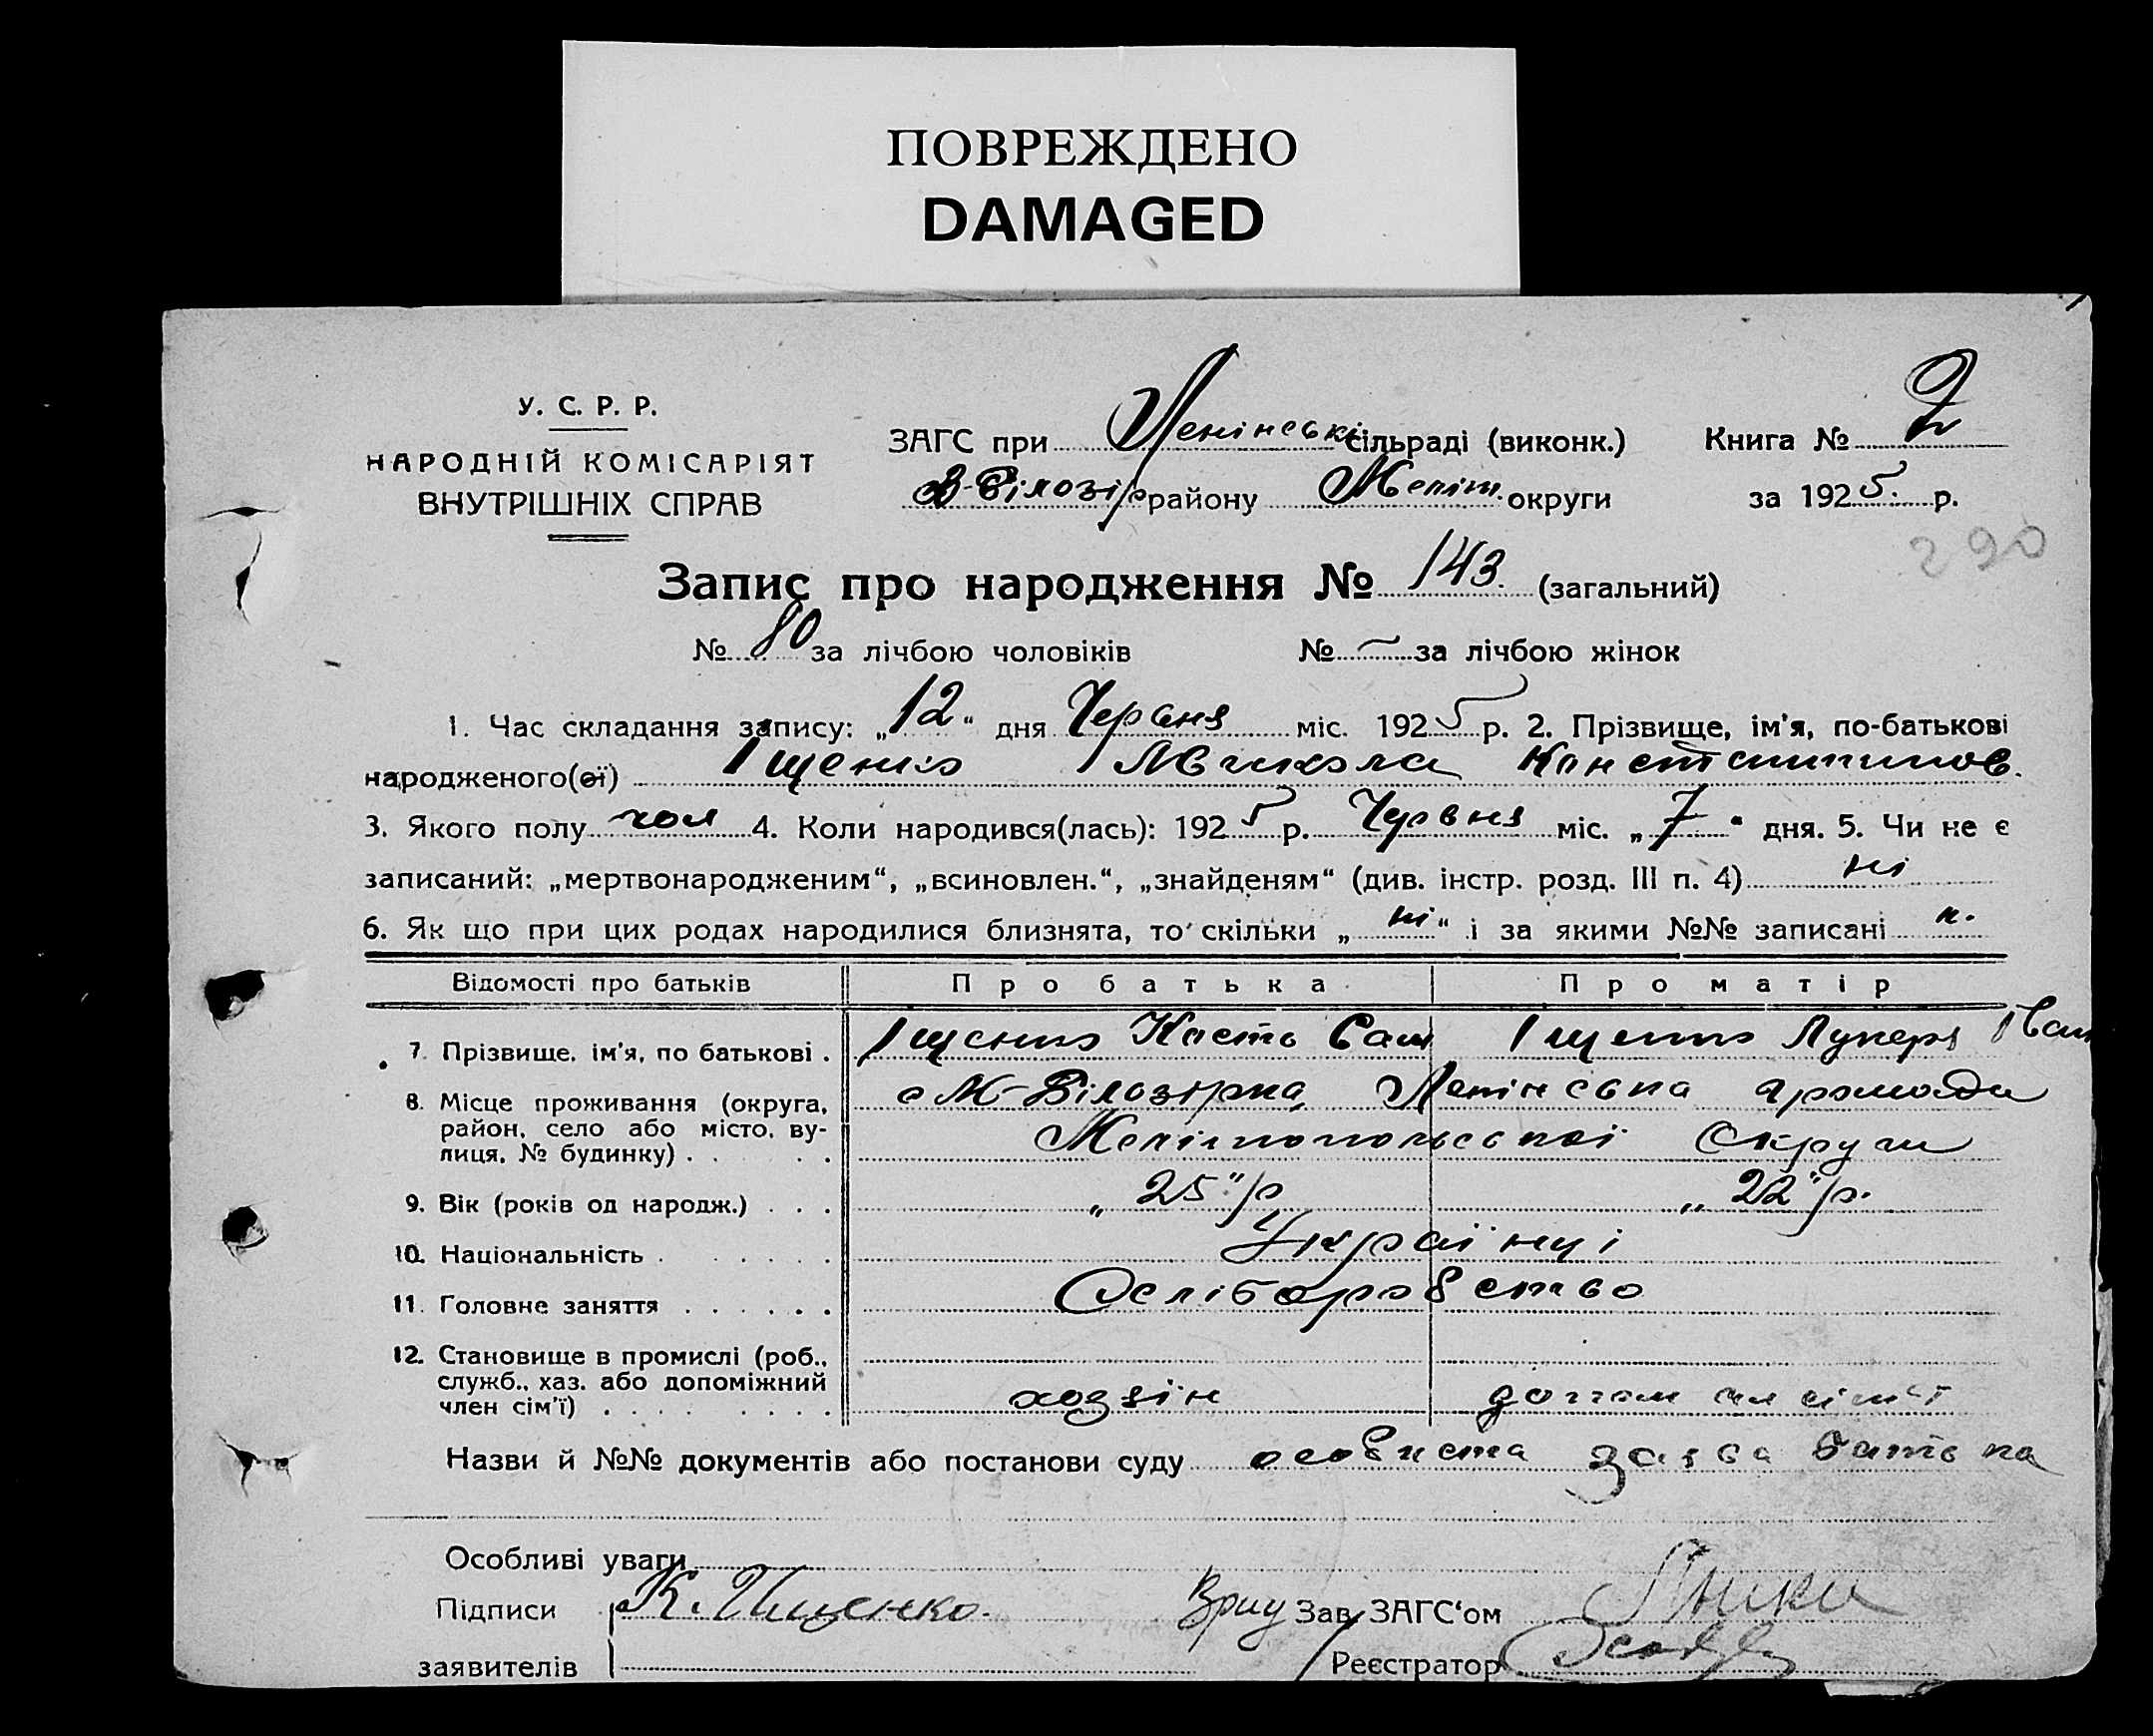 ПОВРЕЖДЕНО
DAMAGED
У. С. Р. Р.
НАРОДНІЙ КОМІСАРІЯТ
ВНУТРІШНІХ СПРАВ
ЗАГС при Ленінські сільраді (виконк.) Книга № 2
В-Білозір району Меліт. округи за 1925 р.
290
Запис про народження № 143. (загальний)
№ 80 за лічбою чоловіків № — за лічбою жінок
1. Час складання запису: „12“ дня Червня міс. 1925 р. 2. Прізвище, ім'я, по-батькові
народженого(ої) Іщенко Микола Константинов.
3. Якого полу чол 4. Коли народився(лась): 1925 р. Червня міс. „7“ дня. 5. Чи не є
записаний: „мертвонародженим“, „всиновлен.“, „знайденям“ (див. інстр. розд. III п. 4) ні
6. Як що при цих родах народилися близнята, то скільки „ні“ і за якими №№ записані н.
Відомості про батьків Про батька Про матір
7. Прізвище, ім'я, по батькові . Іщенко Кость Сам Іщенко Лукеря Іван
8. Місце проживання (округа, район, село або місто, вулиця, № будинку) . . . с М-Білозірка, Ленінська громада
Мелітопольської Округи
9. Вік (років од народж.) . . . „25“ р „22“ р.
10. Національність . . . . . Українці
11. Головне заняття . . . . . . Селібаробство
12. Становище в промислі (роб., служб., хаз. або допоміжний член сім'ї) . . . . . . . . хозяїн допом чл сім'ї
Назви й №№ документів або постанови суду особиста заява батька
Особливі уваги
Підписи К. Іщенко. Врид Зав. ЗАГС'ом
заявителів Реєстратор